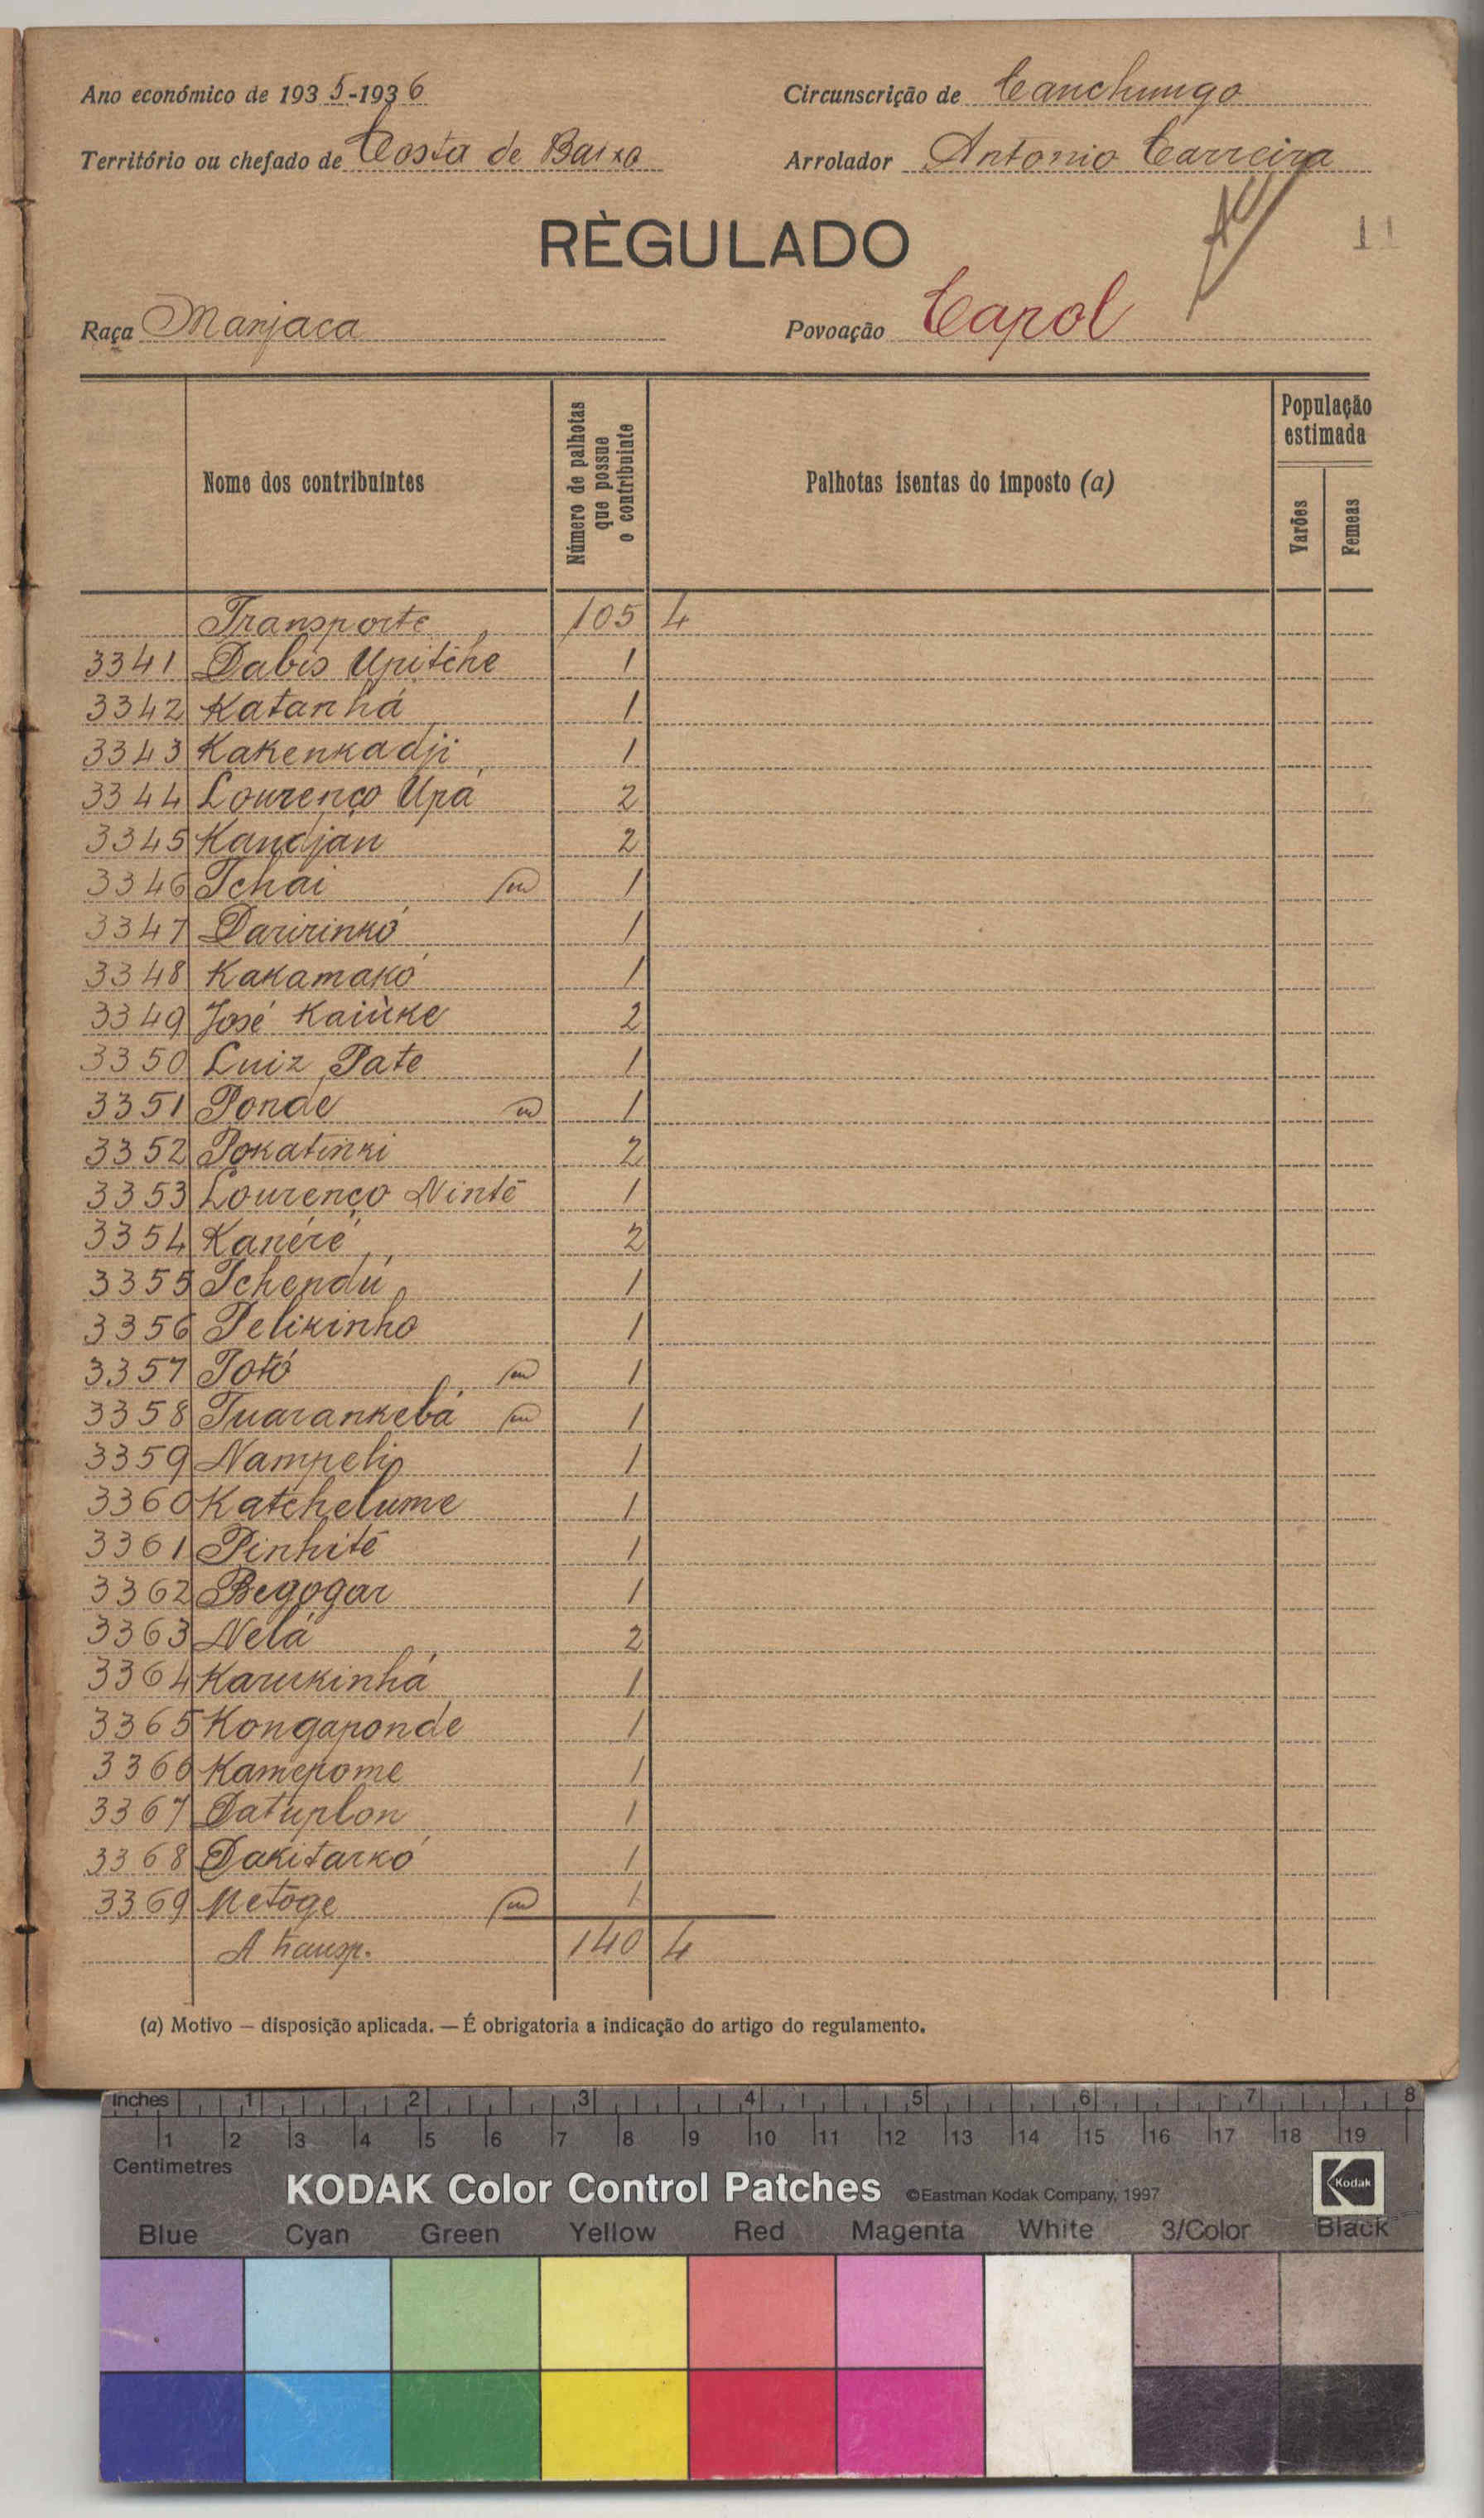 Ano económico de 1935-1936
Circunscrição de Canchungo
Território ou chefado de Costa de Baixo
Arrolador Antonio Carreira
RÈGULADO
11
Raça Manjaca
Povoação Capol
Nome dos contribuintes
Número de palhotas que possue o contribuinte
Palhotas isentas do imposto (a)
População estimada
Varões
Femeas
Transporte 105 4
3341 Dabis Upitche 1
3342 Katanhá 1
3343 Kakenkadji 1
3344 Lourenço Upá 2
3345 Kandjan 2
3346 Tchai 1
3347 Daririnkó 1
3348 Kakamakó 1
3349 José Kaiùke 2
3350 Luiz Pate 1
3351 Ponde 1
3352 Pokatinki 2
3353 Lourenço Nintê 1
3354 Kanéré 2
3355 Tchendú 1
3356 Pelikinho 1
3357 Totó 1
3358 Tuarankebá 1
3359 Nampelip 1
3360 Katchelume 1
3361 Pinhitê 1
3362 Begogar 1
3363 Nelá 2
3364 Karukinhá 1
3365 Kongaponde 1
3366 Kamepome 1
3367 Datuplon 1
3368 Dakitarkó 1
3369 Metoge 1
A transp. 140 4
(a) Motivo — disposição aplicada. — É obrigatoria a indicação do artigo do regulamento.
Inches 1 2 3 4 5 6 7 8
1 2 3 4 5 6 7 8 9 10 11 12 13 14 15 16 17 18 19
Centimetres
KODAK Color Control Patches ©Eastman Kodak Company, 1997 Kodak
Blue Cyan Green Yellow Red Magenta White 3/Color Black